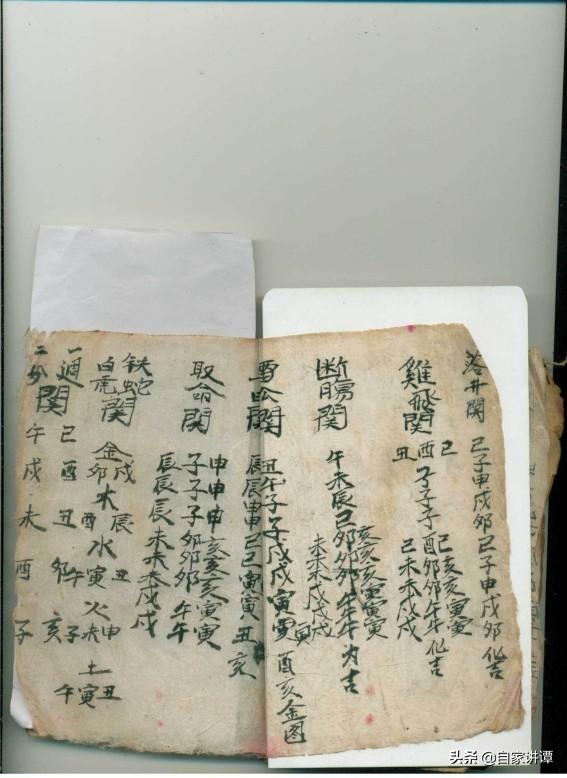 落井関 巳子申戌卯巳子申戌卯化吉
雞飛関
巳酉丑
子子子
巳亥亥寅寅
酉卯卯午午化吉
未未戌戌
断腸関 午未辰巳卯卯卯午午为吉
亥亥亥寅寅寅
未未未戌戌戌
丑午子子戌戌寅寅酉亥金图
辰辰申申巳巳寅寅丑亥
取命関
申申申亥亥亥寅寅
子子子卯卯卯午午
辰辰辰未未未戌戌
铁蛇
白虎関
金戌
卯水辰
酉水寅丑
火未申
土丑
午寅
一週関 巳酉丑卯午子亥
二分 午戌未酉子
头条 @自家讲谭